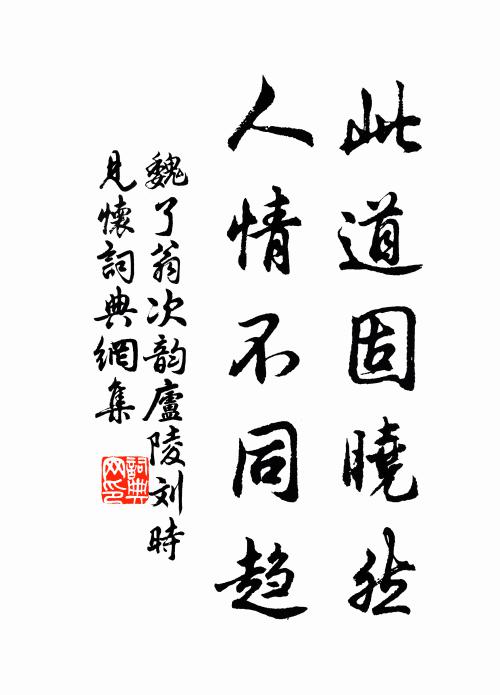 此道固曉然
人情不同趋
魏了翁次韵廬陵刘時
見懷詞典網集
詞典
网印